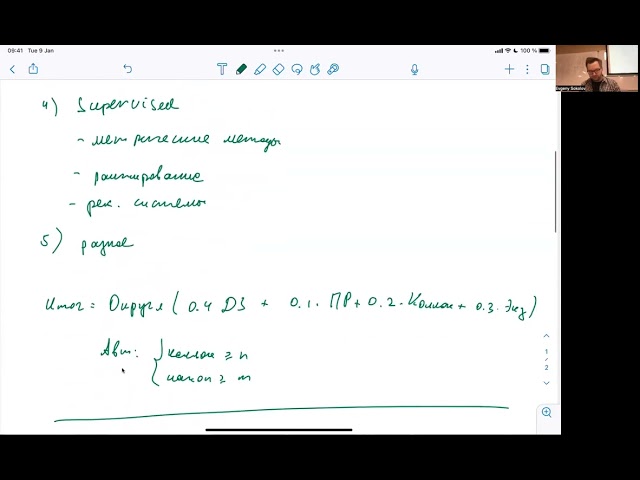 09:41 Tue 9 Jan
100 %
Evgeny Sokolov
4) Supervised
- метрические методы
- ранжирование
- рек. системы
5) разное
Итог = Округл ( 0.4 ДЗ + 0.1 · ПР + 0.2 · Коллок + 0.3 · Экз )
Авт: { коллок ≥ n
накоп ≥ m
1
2